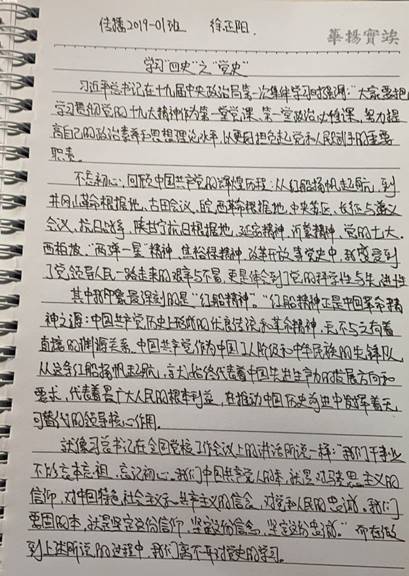 传播2019-01班 徐正阳.
華揚實談
学习“四史”之“党史”
习近平总书记在十九届中央政治局第一次集体学习时强调:“大家要把
学习贯彻党的十九大精神作为第一堂党课、第一堂政治必修课,努力提
高自己的政治素养和思想理论水平,以更好担负起党和人民赋予的重要
职责。
不忘初心,回顾中国共产党的辉煌历程:从红船扬帆起航,到
井冈山革命根据地,古田会议,皖西革命根据地,中央苏区,长征与遵义
会议,抗日战争,陕甘宁抗日根据地,延安精神,沂蒙精神,党的七大,
西柏坡,“两弹一星”精神,焦裕禄精神,改革开放等党史中,我感受到
了党领导人民一路走来的艰辛与不易,更是体会到了党的科学性与先进性
其中我印象最深刻的是“红船精神”。“红船精神正是中国革命精
神之源:中国共产党历史上形成的优良传统和革命精神,无不与之有着
直接的渊源关系。中国共产党作为中国工人阶级和中华民族的先锋队
从这条红船扬帆起航,就始终代表着中国先进生产力的发展方向和
要求,代表着最广大人民的根本利益,在推动中国历史前进中发挥着无
可替代的领导核心作用。
就像习总书记在全国党校工作会议上的讲话所说一样:“我们干事业
不能忘本忘祖、忘记初心。我们中国共产党人的本,就是对马克思主义的
信仰,对中国特色社会主义和共产主义的信念,对党和人民的忠诚。我们
要固的本,就是坚定这份信仰、坚定这份信念、坚定这份忠诚。”而在做
到上述所说的过程中,我们离不开对党史的学习。